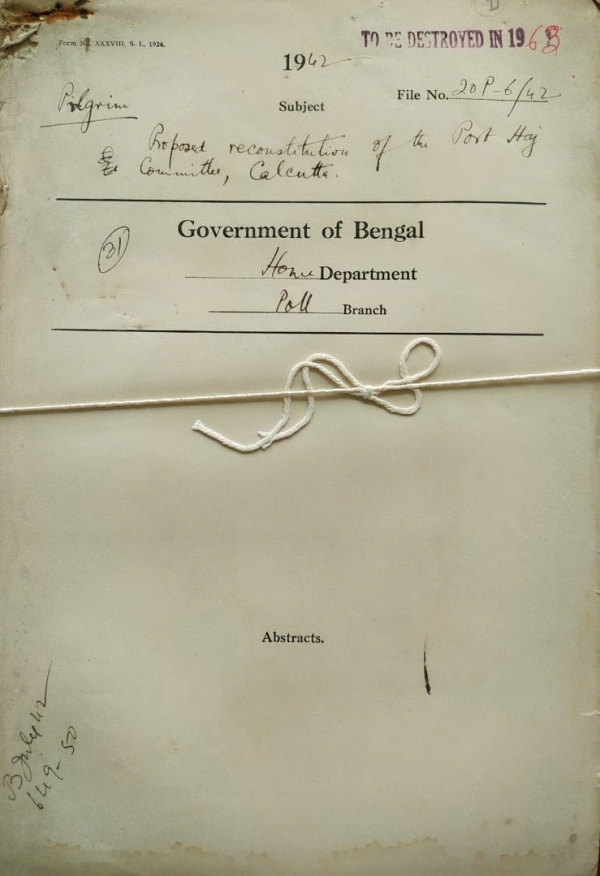 Form No. XXXVIII, S. I., 1924.
TO BE DESTROYED IN 196
1942
Pilgrim
Subject
File No. 20P-6/42
Proposed reconstitution of the Port Haj
Committee, Calcutta.
Government of Bengal
21
Home Department
Poll Branch
Abstracts.
B July 42
649-50